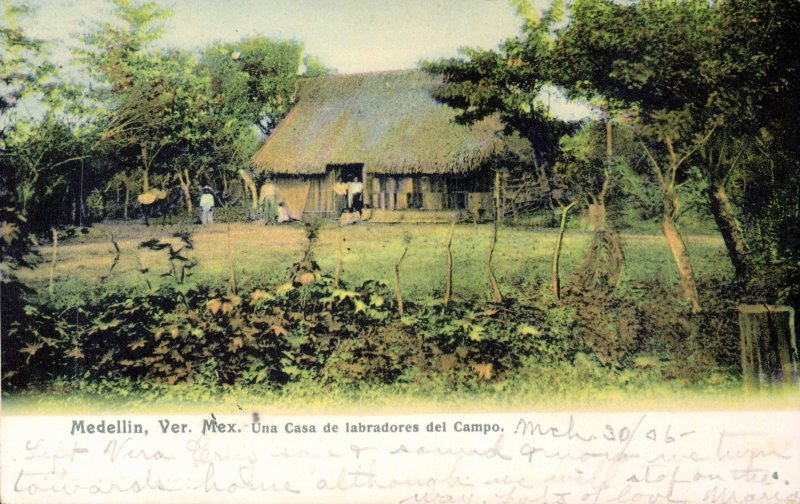 Medellin, Ver. Mex. Una Casa de labradores del Campo. Mch. 30/06-
Left Vera Cruz safe & sound & now we turn
towards home although we will stop on the
way. Lots of love